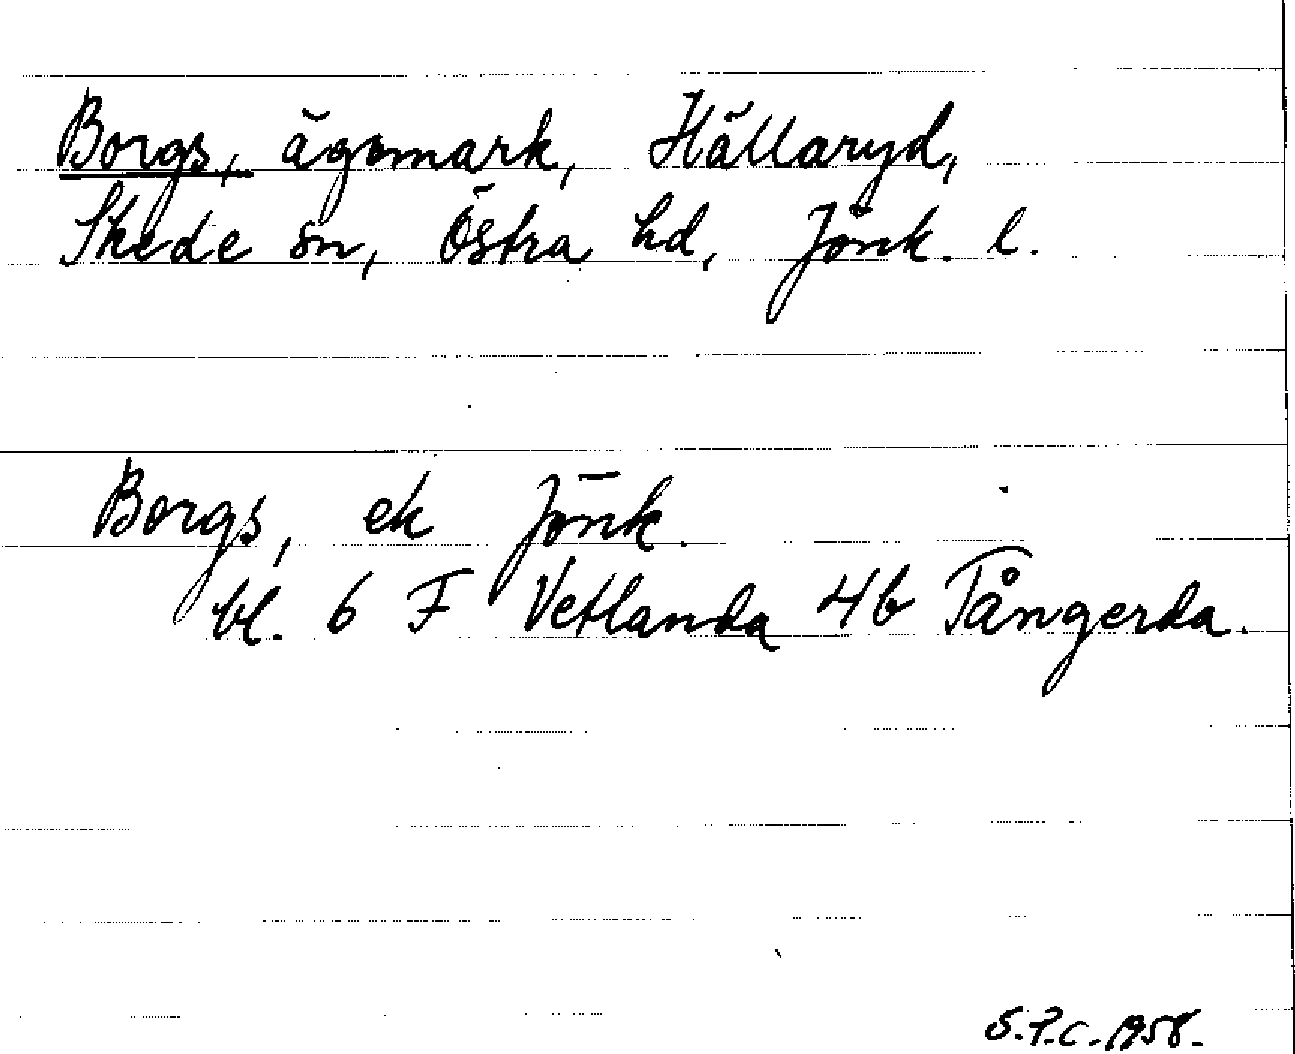 Borgs, ägomark, Hällaryd,
Skede sn, Östra hd, Jönk. l.
Borgs, ek Jönk.
bl. 6 F Vetlanda 4b Tångerda.
S.P.C. 1958.